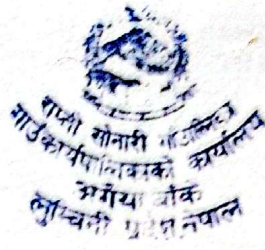 राप्ती सोनारी गाउँपालिका
गाउँकार्यपालिकाको कार्यालय
अगैया बाँके
लुम्बिनी प्रदेश, नेपाल